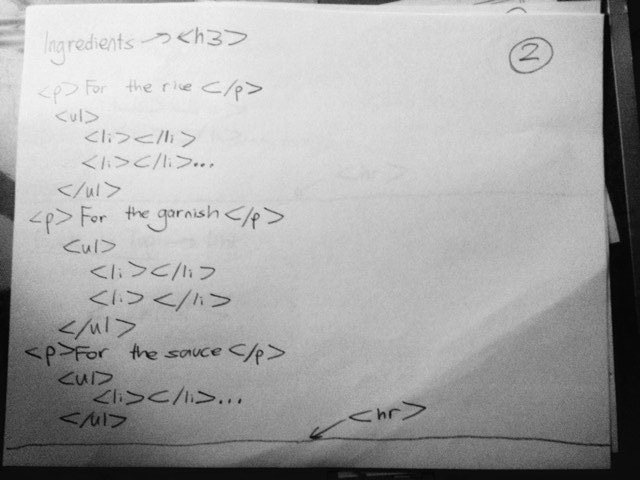 Ingredients → <h3>
2
<p> For the rice </p>
<ul>
<li></li>
<li></li>...
</ul>
<p> For the garnish </p>
<ul>
<li></li>
<li> </li>
</ul>
<p>For the sauce </p>
<ul>
<li></li>...
</ul>
<hr>